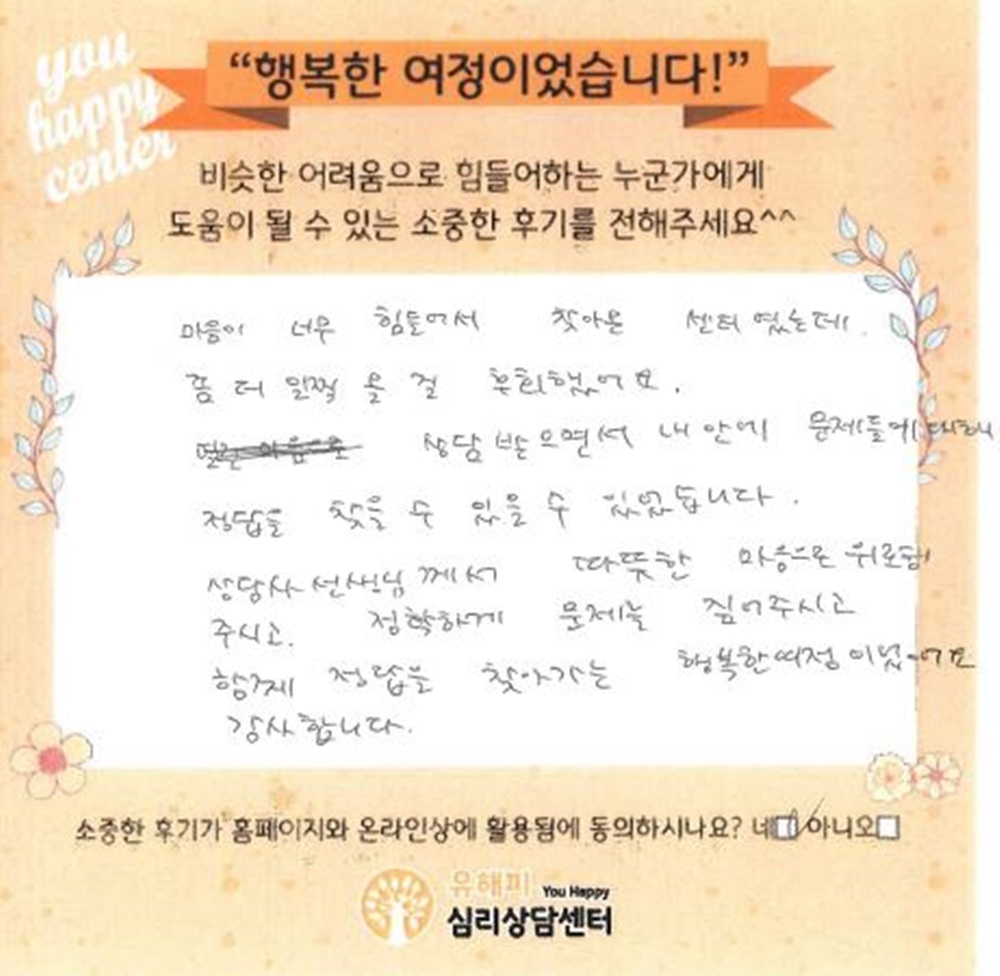 you
happy
center
“행복한 여정이었습니다!”
비슷한 어려움으로 힘들어하는 누군가에게
도움이 될 수 있는 소중한 후기를 전해주세요^^
마음이 너무 힘들어서 찾아온 센터였는데.
좀 더 일찍 올 걸 후회했어요.
상담 받으면서 내 안에 문제들에 대해
정답을 찾을 수 있을 수 있었습니다.
상담사 선생님께서 따뜻한 마음으로 위로해
주시고. 정확하게 문제를 짚어주시고
함께 정답을 찾아가는 행복한 여정이었어요
감사합니다.
소중한 후기가 홈페이지와 온라인상에 활용됨에 동의하시나요? 네 아니오
유해피 You Happy
심리상담센터